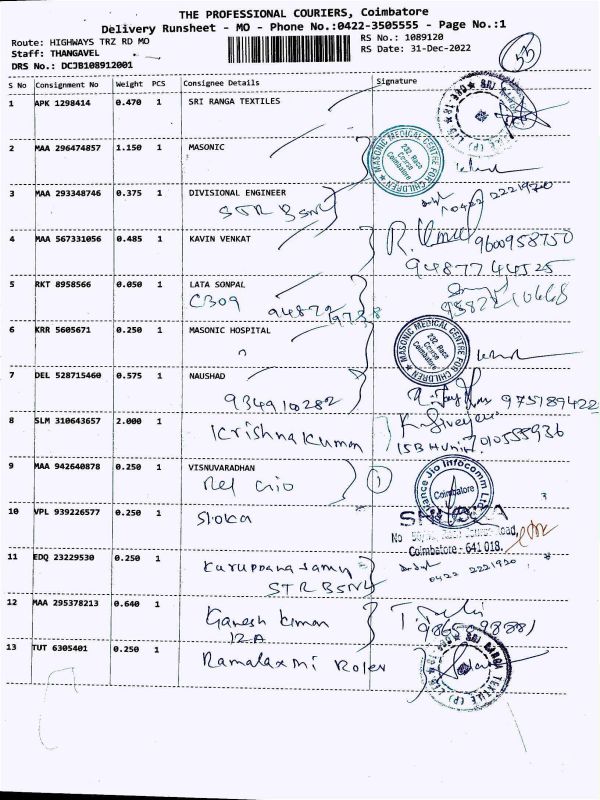 THE PROFESSIONAL COURIERS, Coimbatore
Delivery Runsheet - MO - Phone No.:0422-3505555 - Page No.:1
Route: HIGHWAYS TRZ RD MO
RS No.: 1089120
Staff: THANGAVEL
RS Date: 31-Dec-2022
DRS No.: DCJB108912001
55
S No Consignment No Weight PCS Consignee Details Signature
1 APK 1298414 0.470 1 SRI RANGA TEXTILES
2 MAA 296474857 1.150 1 MASONIC
MASONIC MEDICAL CENTRE FOR CHILDREN
232, Race
Course
Coimbatore
3 MAA 293348746 0.375 1 DIVISIONAL ENGINEER
STR BSNL
0422 2221920
4 MAA 567331056 0.485 1 KAVIN VENKAT
9600958750
9487744525
5 RKT 8958566 0.050 1 LATA SONPAL
C309
6 KRR 5605671 0.250 1 MASONIC HOSPITAL
MASONIC MEDICAL CENTRE FOR CHILDREN
232, Race
Course
Coimbatore
7 DEL 528715460 0.575 1 NAUSHAD
934910282
975189422
8 SLM 310643657 2.000 1 Krishna Kumar
7010555936
9 MAA 942640878 0.250 1 VISNUVARADHAN
Rel Gio
1
Reliance Jio Infocomm Ltd
Coimbatore
10 VPL 939226577 0.250 1 Sloka
Coimbatore - 641 018.
11 EDQ 23229530 0.250 1 Karuppanasamy
STR BSNL
0422 2221920
12 MAA 295378213 0.640 1 Ganesh Kumar
12A
13 TUT 6305401 0.250 1 Ramalaxmi Roler